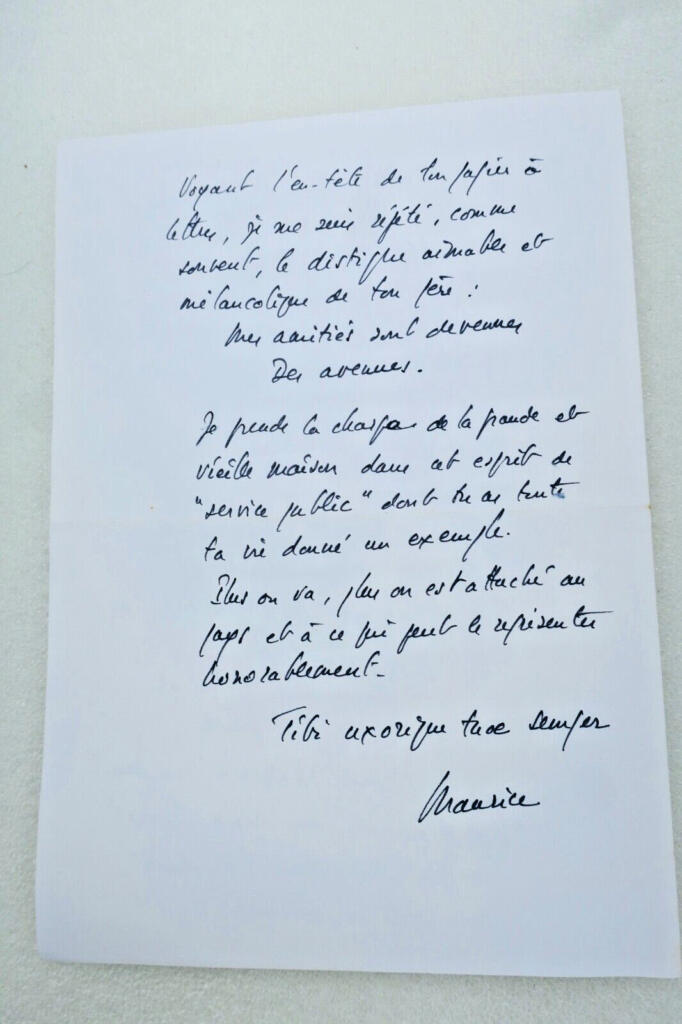 Voyant l'en-tête de ton papier à
lettres, je me suis répété, comme
souvent, le distique aimable et
mélancolique de ton père :
Mes amitiés sont devenues
Des avenues.
Je prends la charge de la grande et
vieille maison dans cet esprit de
"service public" dont tu as toute
ta vie donné un exemple.
Plus on va, plus on est attaché au
pays et à ce qui peut le représenter
honorablement.
Tibi uxorique tuae semper
Maurice